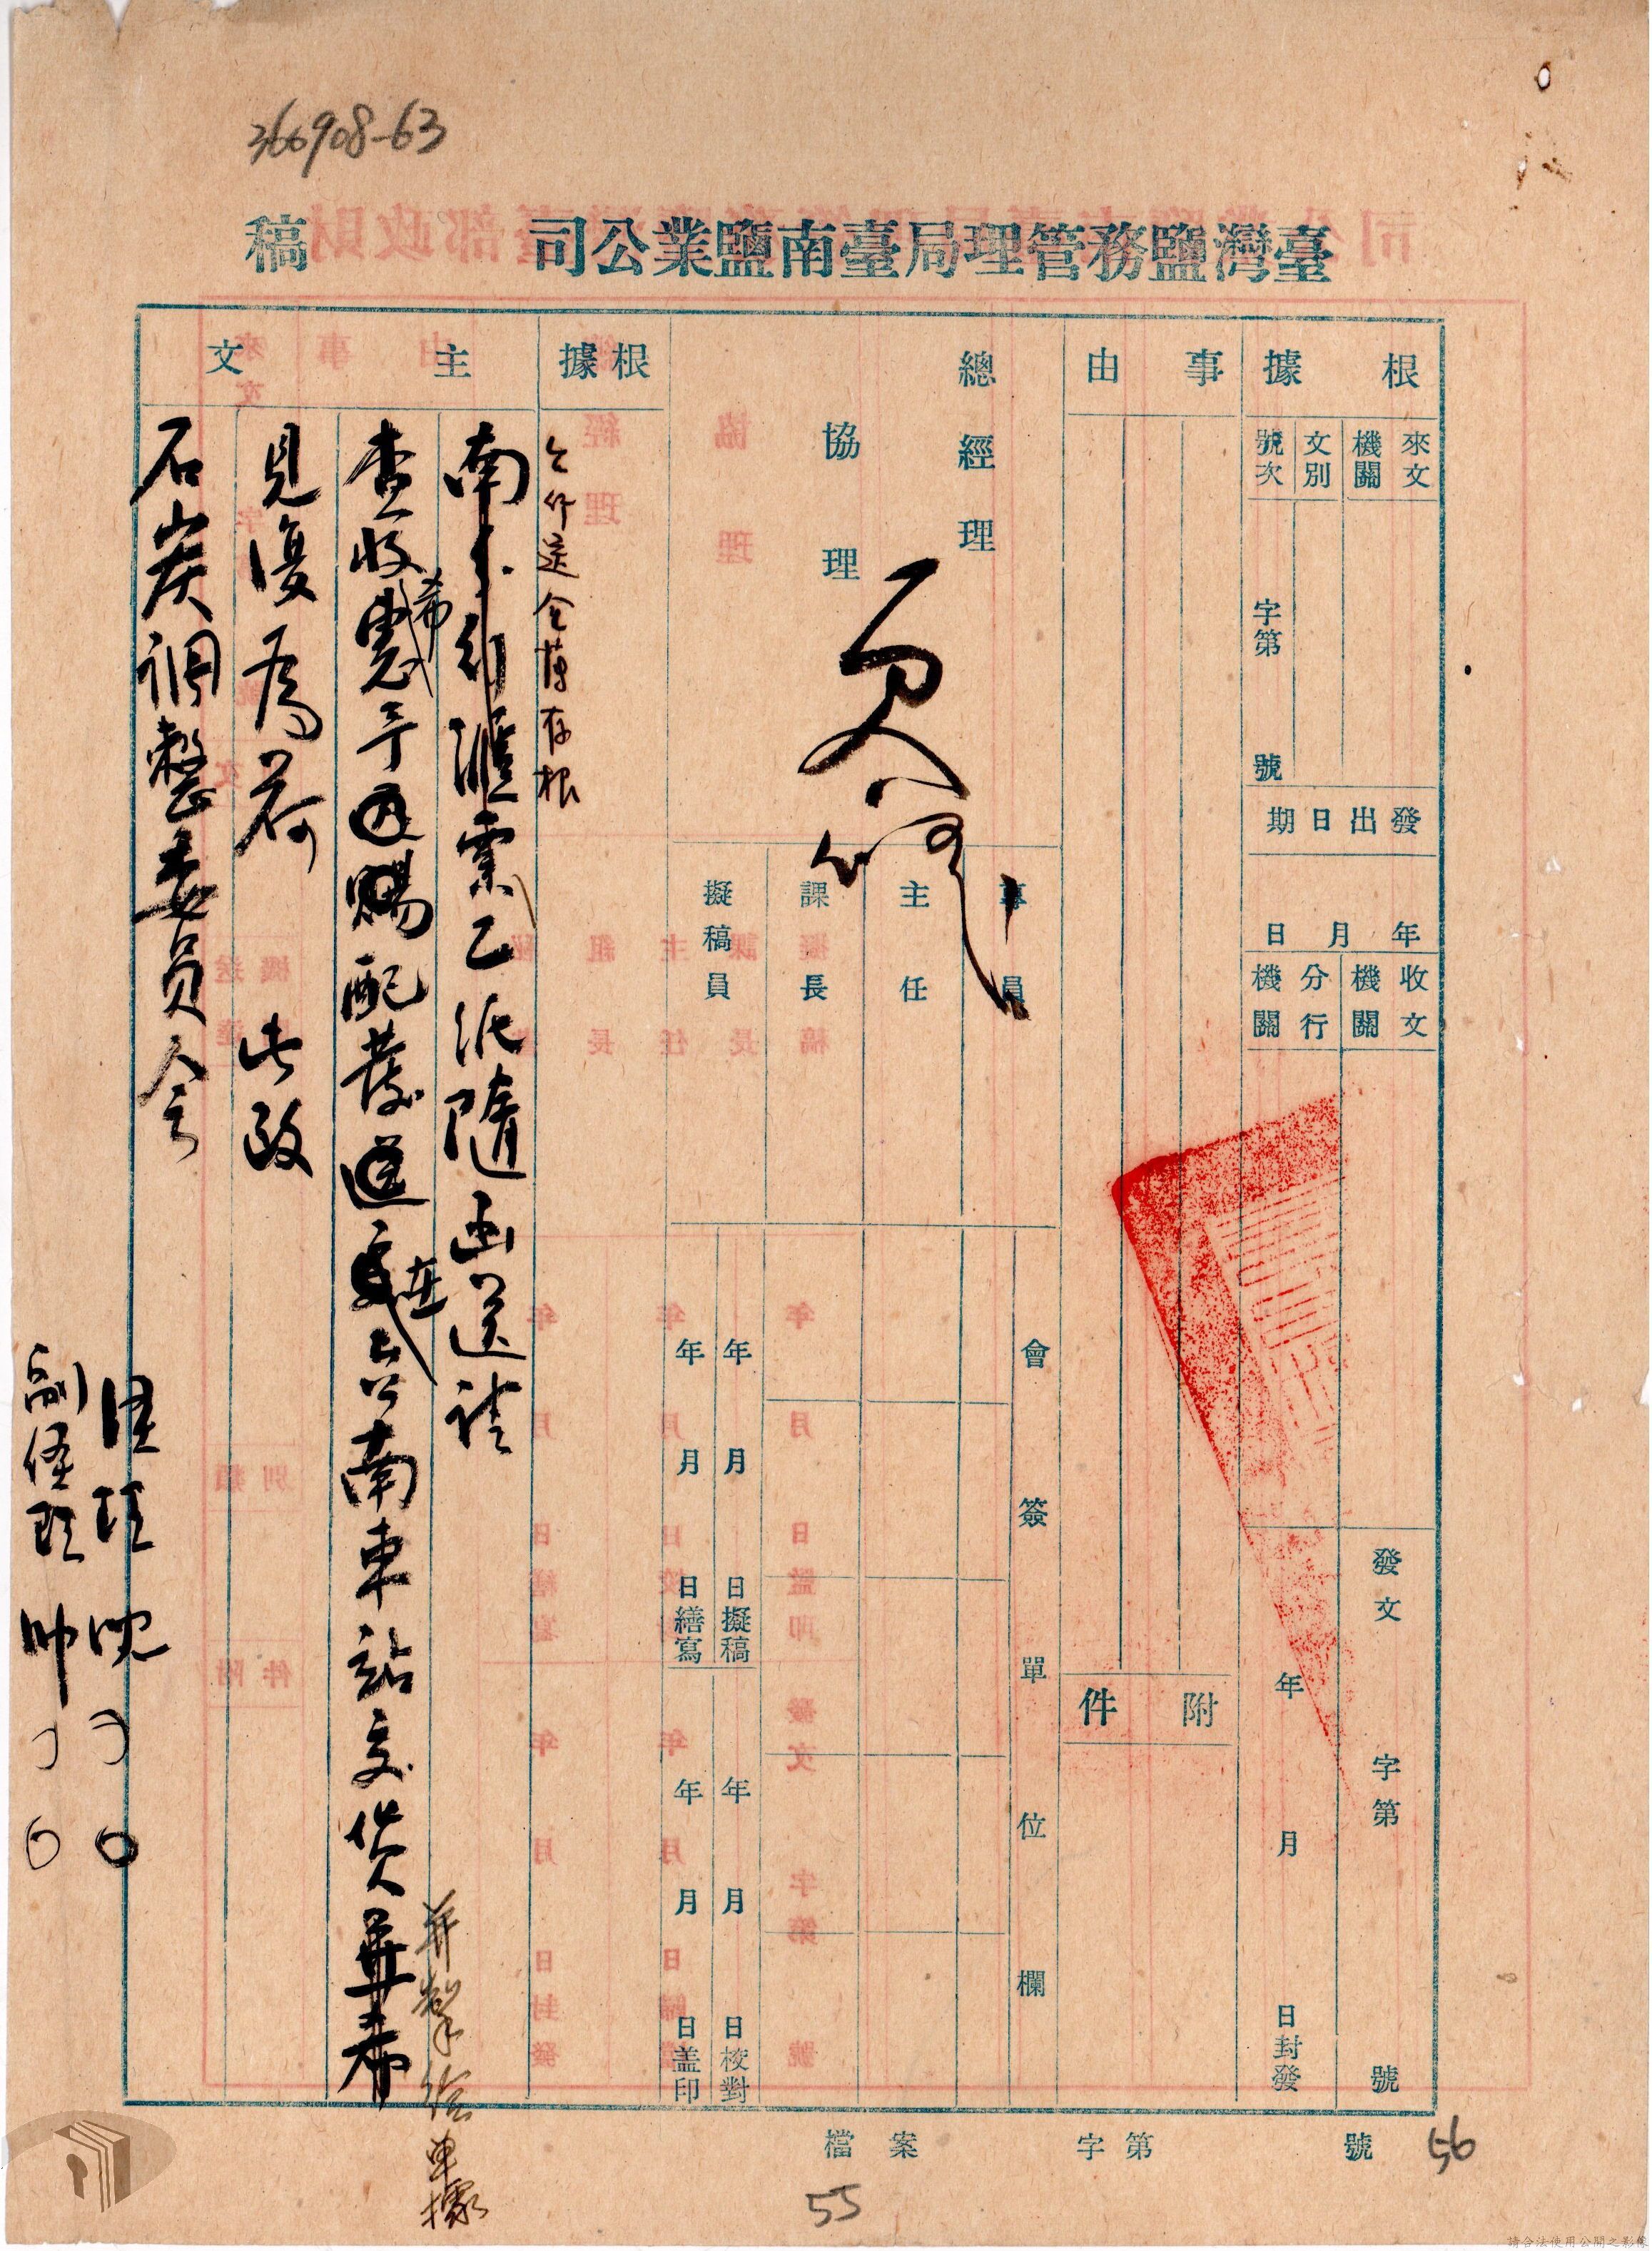 366908-63
臺灣鹽務管理局臺南鹽業公司 稿
根據
來文機關
文別
號次
字第 號
發出日期
年 月 日
收文機關
分行機關
發文 字第 號
年 月 日封發
事由
附件
總經理
協理
主任
課長
擬稿員
會簽單位欄
年 月 日擬稿
年 月 日繕寫
年 月 日校對
年 月 日蓋印
根據
存根
主文
匯票乙紙隨函送請
查收
希
予
賜配發
在
台南車站交貨
并掣給單據
見復為荷 此致
石炭調整委員会
經理 沈〇〇
副經理 帥〇〇
檔案 字第 號
56
55
請合法使用公開之影像